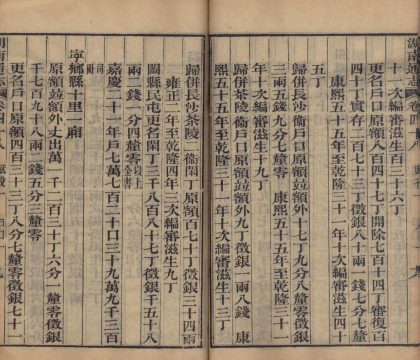 十一次編審滋生六丁
更名戶口原額八百四十七丁開除七百十四丁審復百
四十丁實存二百七十三丁徵銀十四兩一錢七分七釐
康熙五十五年至乾隆三十一年十次編審滋生四十
五丁
歸併長沙衞戶口原額竝額外十七丁九分一釐零徵銀
三兩五錢九分七釐零 康熙五十五年至乾隆三十一
年十次編審滋生十丁
歸併茶陵衞戶口原額竝額外九丁徵銀一兩八錢 康
熙五十五年至乾隆三十一年十次編審滋生十一丁
歸併長沙茶陵二衞閑丁原額百七十丁徵銀三十四兩
雍正二年至乾隆四年一次編審滋生九丁
闔縣民屯更名閑丁三千八百八十七丁徵銀千五十八
兩二錢一分四釐零以上全書
嘉慶二十一年戶七萬七百二十口三十九萬九千三百
司冊
寧鄉縣十里一廂
原額竝額外丈出萬一千二百三十丁六分一釐零徵銀
千七百九十八兩一錢五分三釐零
更名戶口原額四百三十二丁八分七釐零徵銀七十一